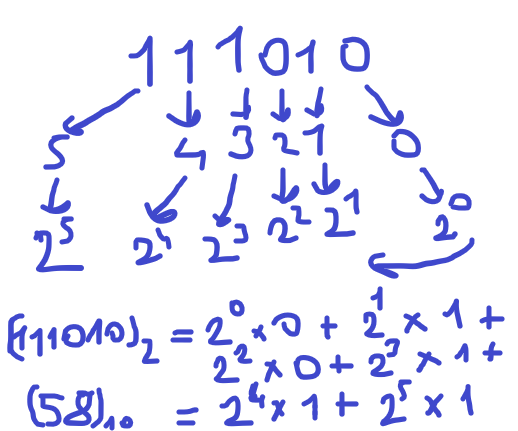 111010
5 4 3 2 1 0
2⁵ 2⁴ 2³ 2² 2¹ 2⁰
(111010)₂ = 2⁰ × 0 + 2¹ × 1 +
2² × 0 + 2³ × 1 +
(58)₁₀ = 2⁴ × 1 + 2⁵ × 1